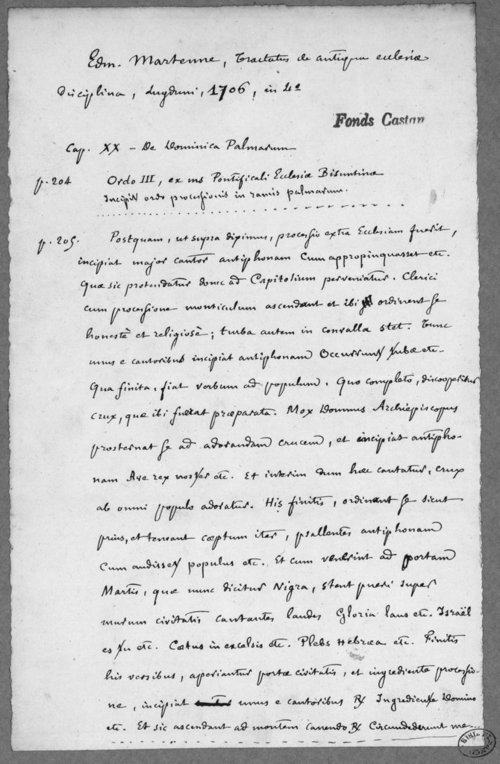 Edm. Martenne, Tractatus de antiqua ecclesiæ
Disciplina, Lugduni, 1706, in 4º
Fonds Castan
Cap. XX - De Dominica Palmarum
p. 204 Ordo III, ex ms Pontificali Ecclesiæ Bisuntinæ
Incipit ordo processionis in ramis palmarum.
p. 205. Postquam, ut supra diximus, processio extra Ecclesiam fuerit,
incipiat major cantor antiphonam Cum appropinquasset etc.
Quæ sic protendatur donec ad Capitolium perveniatur. Clerici
cum processione monticulum ascendant et ibi ordinent se
honestè et religiosè; turba autem in convalle stet. Tunc
unus e cantoribus incipiat antiphonam Occurrunt turbæ etc.
Qua finita, fiat verbum ad populum. Quo completo, discooperitur
crux, quæ ibi fuerat præparata. Mox Domnus Archiepiscopus
prosternat se ad adorandam crucem, et incipiat antipho-
nam Ave rex noster etc. Et interim dum hæc cantatur, crux
ab omni populo adoratur. His finitis, ordinent se sicut
prius, et teneant cœptum iter, psallentes antiphonam
Cum audisset populus etc. Et cum venerint ad portam
Martis, quæ nunc dicitur Nigra, stent pueri super
murum civitatis cantantes laudes Gloria laus etc. Israël
es tu etc. Cœtus in excelsis etc. Plebs Hebræa etc. Finitis
his versibus, aperiantur portæ civitatis, et ingrediente processio-
ne, incipiat unus e cantoribus ℟ Ingrediente Domino
etc. Et sic ascendant ad montem canendo ℟ Circumdederunt me